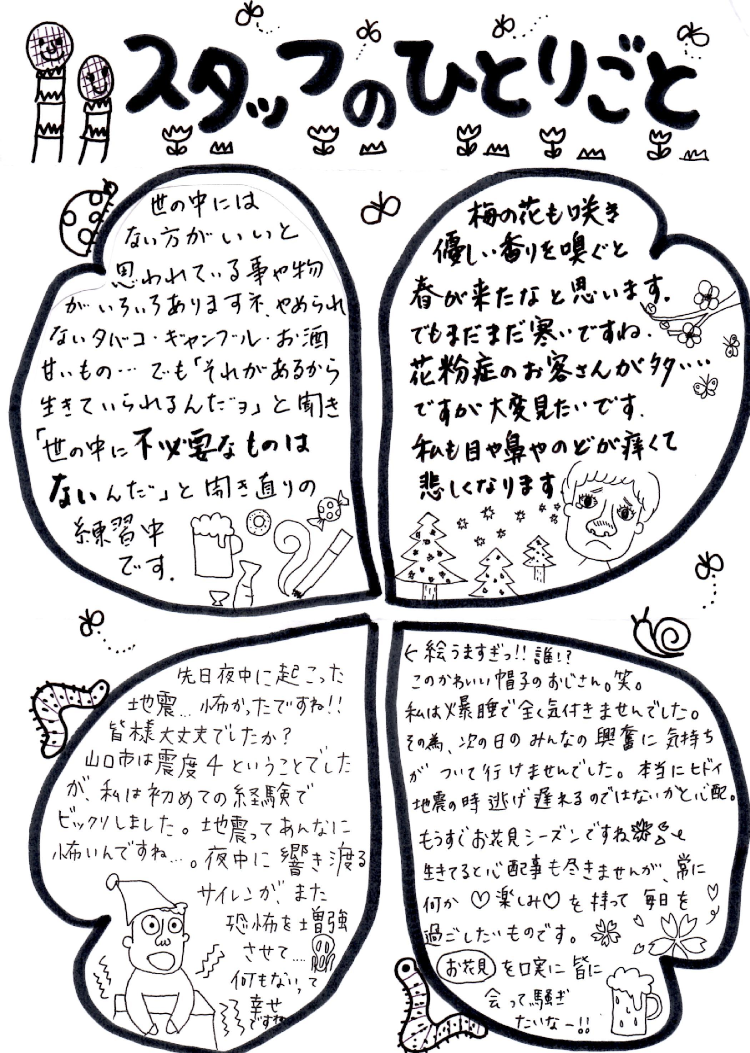 スタッフのひとりごと
世の中には
ない方がいいと
思われている事や物
がいろいろありますネ、やめられ
ないタバコ・ギャンブル・お酒
甘いもの… でも「それがあるから
生きていられるんだョ」と聞き
「世の中に不必要なものは
ないんだ」と開き直りの
練習中
です.
梅の花も咲き
優しい香りを嗅ぐと
春が来たなと思います.
でもまだまだ寒いですね.
花粉症のお客さんが多‥‥
ですが大変見たいです.
私も目や鼻やのどが痒くて
悲しくなります
先日夜中に起こった
地震… 怖かったですね!!
皆様大丈夫でしたか?
山口市は震度4ということでした
が、私は初めての経験で
ビックリしました。地震ってあんなに
怖いんですね…。夜中に響き渡る
サイレンが、また
恐怖を増強
させて…
何もないって
幸せ
ですね
←絵うますぎっ!! 誰!?
このかわいい帽子のおじさん。笑。
私は爆睡で全く気付きませんでした。
その為、次の日のみんなの興奮に気持ち
がついて行けませんでした。本当にヒドイ
地震の時逃げ遅れるのではないかと心配。
もうすぐお花見シーズンですね
生きてると心配事も尽きませんが、常に
何か♡楽しみ♡を持って毎日を
過ごしたいものです。
お花見を口実に皆に
会って騒ぎ
たいなー!!